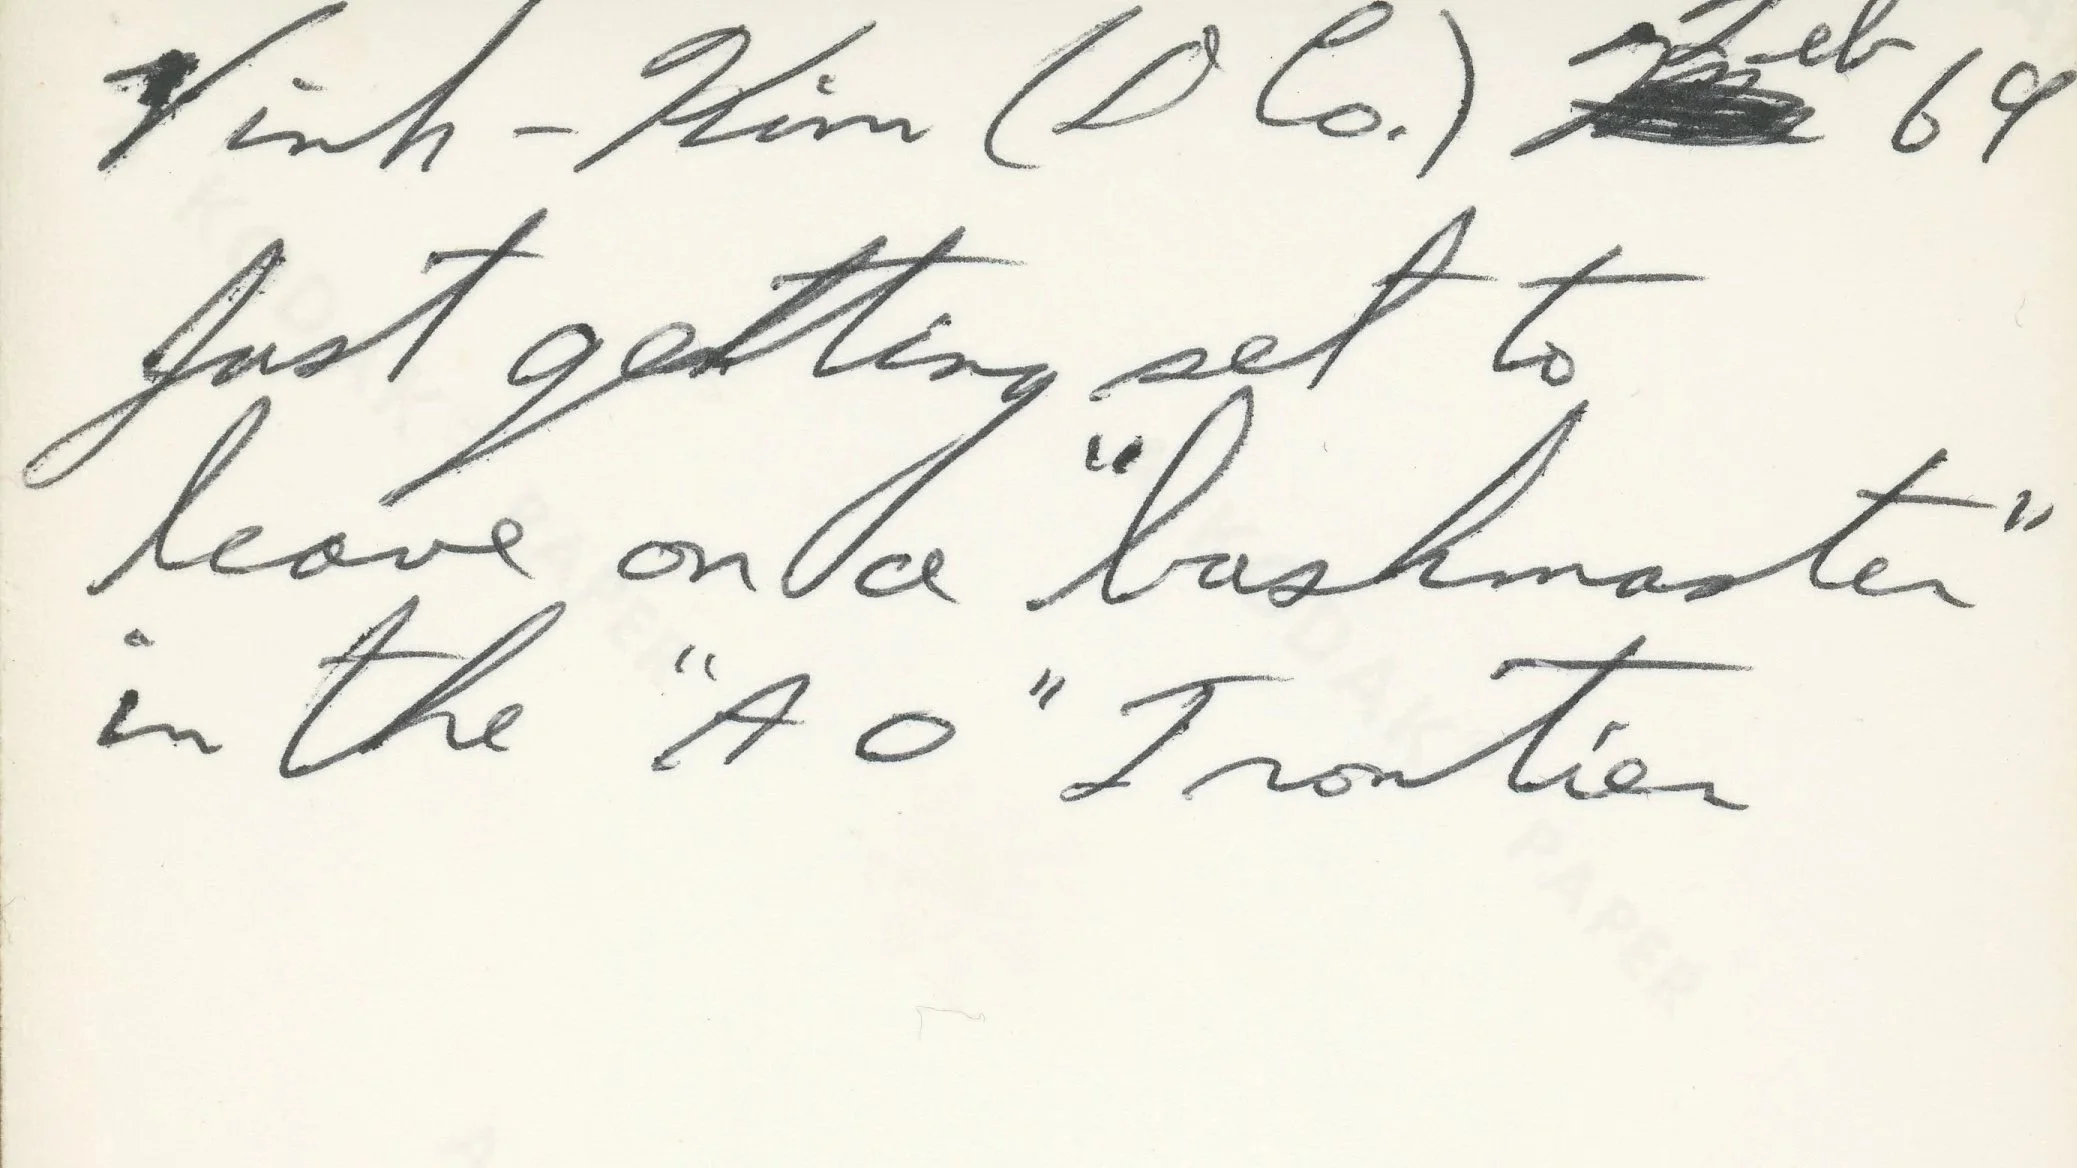 Vinh-Kim (D Co.) Feb 69
Just getting set to
leave on a "bushmaster"
in the "AO" Frontier
KODAK PAPER
KODAK PAPER